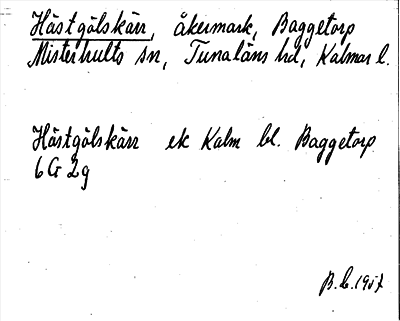 Hästgölskärr, åkermark, Baggetorp
Misterhults sn, Tunaläns hd, Kalmar l.
Hästgölskärr ek Kalm bl. Baggetorp
6 G 2g